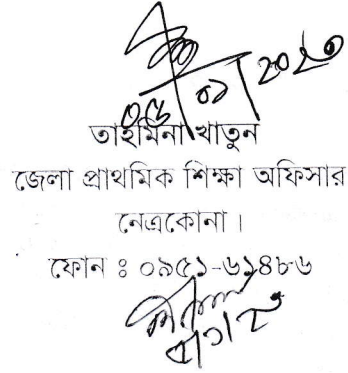 তাহমিনা খাতুন
জেলা প্রাথমিক শিক্ষা অফিসার
নেত্রকোনা ।
ফোন ঃ ০৯৫১-৬১৪৮৬